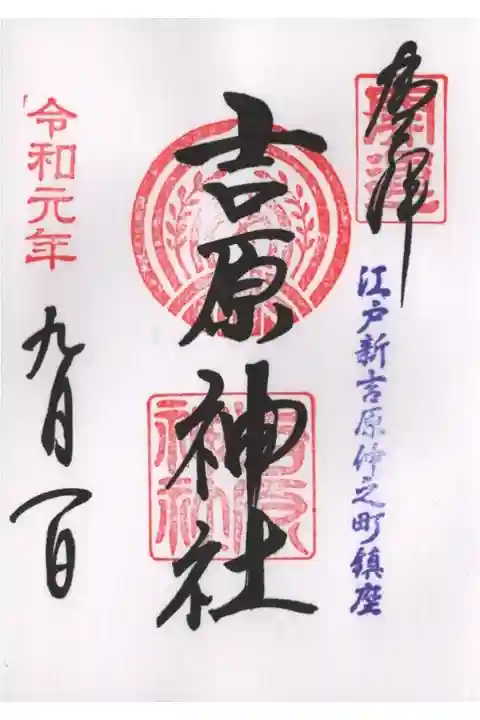 奉拝
開運
江戸新吉原仲之町鎮座
吉原神社
吉原
神社
令和元年
九月一日